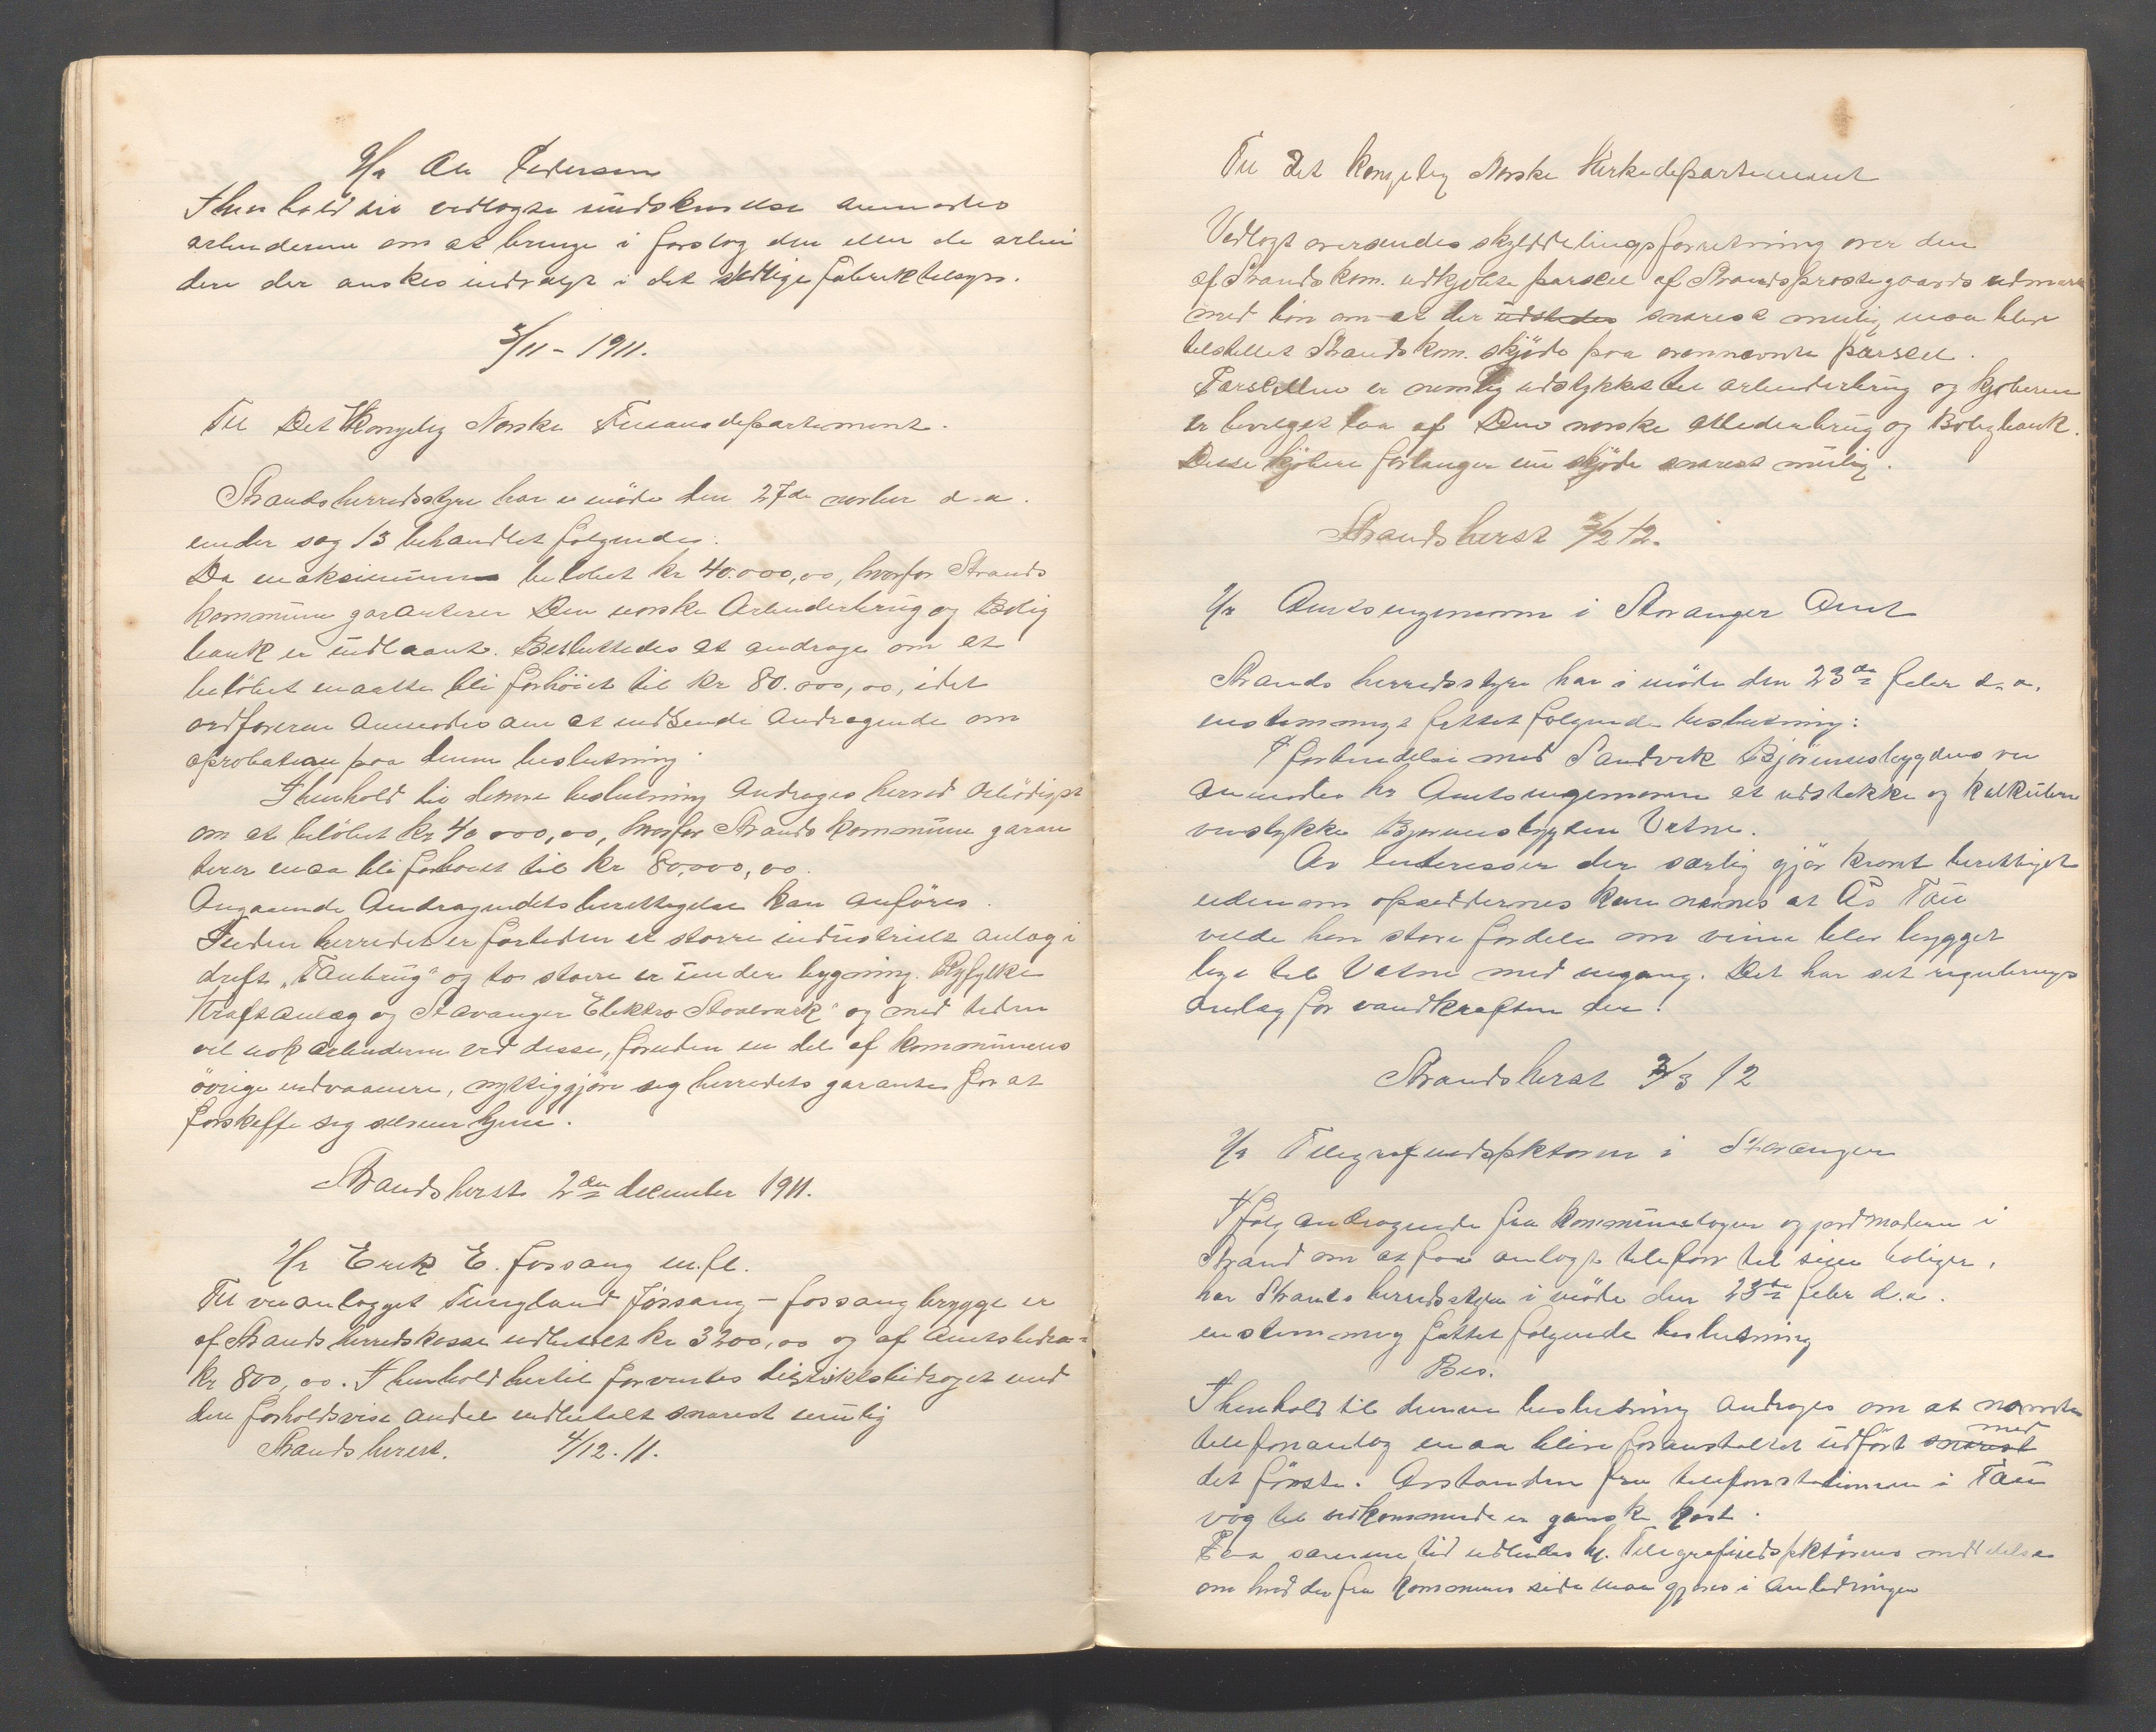 H/r Ole Pedersen
I henhold til vedlagte rundskrivelse anmodes
arbeiderne om at bringe i forslag den eller de arbei
dere der ønskes indvalgt i det stedlige fabriktilsyn.
3/11 - 1911.
Til Det Kongelig Norske Finansdepartement.
Strands herredsstyre har i møde den 27de novber d.a.
under sag 13 behandlet følgende:
Da maksimum beløbet kr 40.000,00, hvorfor Strands
kommune garanterer Den norske Arbeiderbrug og Bolig
bank er indlaant. Besluttedes at andrage om at
beløbet maatte bli forhöiet til kr 80.000,00, idet
ordføreren anmodes om at indsende Andragende om
aprobation paa denne beslutning.
I henhold til denne beslutning Andrages herved ærbödigst
om at belöbet kr 40 000,00, hvorfor Strands kommune garan
terer maa bli forhöiet til kr 80,000,00.
Angaaende Andragendets berettigelse kan anföres.
Inden herredet er fortiden et större industrielt anlæg i
drift „Taubrug" og to større er under bygning. Ryfylke
Kraftanlæg og Stavanger Elektro Staalverk" og med tiden
vil nok arbeiderne ved disse, foruden en del af kommunens
övrige indvaanere, nyttiggjöre sig herredets garanti for at
forskaffe sig selveier hjem.
Strands herst. 2den december 1911.
H/r Erik E. Jössang m.fl.
Til veianlægget Tungland Jössang - Jössang brygge er
af Strands herredskasse udbetalt kr 3200,00 og af Amtsbidra=
kr 800,00. I henhold hertil forventes distriktsbidraget med
den forholdsvise andel udbetalt snarest mulig
Strands herst. 4/12. 11.
Til Det Kongelig Norske Kirkedepartement
Vedlagt oversendes skylddelingsforretning over den
af Strands kom. udkjøbte parsel af Strands prestegaards udmark
med bön om at der udstedes snarest mulig maa blive
tilstillet Strands kom. skjöde paa ovennævnte parsel.
Parsellen er nemlig udstykket til arbeiderbrug og kjöberen
er bevilget laan af Den norske Arbeiderbrug og Boligbank.
Disse kjöbere forlanger nu skjöde snarest mulig.
Strands herst 3/2 12.
H/r Amtsingeniøren i Stavanger Amt
Strands herredsstyre har i möde den 23de feber d.a.
enstemmigt fattet følgende beslutning:
I forbindelse med Sandvik Björeimsbygdens vei
anmodes hr Amtsingeniøren at udstikke og kalkulere
veistykke Bjøreimsbygden Vatne.
Av interesser der særlig gjör kravet berettiget
udenom opsiddernes kan nævnes at A/s Tau
vilde have store fordele om veien blev bygget
lige til Vatne med engang. Det har sit regulerings
anlæg for vandkraften der.
Strands herst 2/3 12
H/r Telegrafindspktøren i Stavanger
Ifølg andragende fra kommunelægen og jordmoderen i
Strand om at faa anlagt telefon til sine boliger,
har Strands herredsstyre i möde den 23de feber d.a.
enstemmig fattet følgende beslutning
Bes.
I henhold til denne beslutning andrages om at nævnte
telefonanlæg maa blive foranstaltet udfört snarest med
det förste. Avstanden fra telefonstationen i Tau
våg til vedkommende er ganske kort.
Paa samme tid udbedes hr. Telegrafindspktörens meddelelse
om hvad der fra kommunens side maa gjøres i anledningen